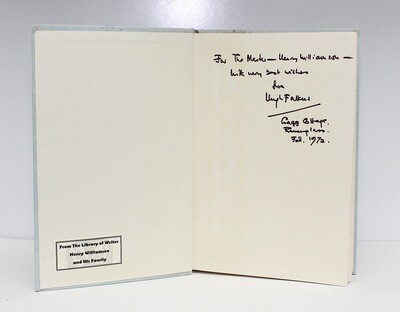 From The Library of Writer
Henry Williamson
and His Family
For The Master — Henry Williamson —
with very best wishes
from
Hugh Falkus
Cragg Cottage.
Feb. 1972.